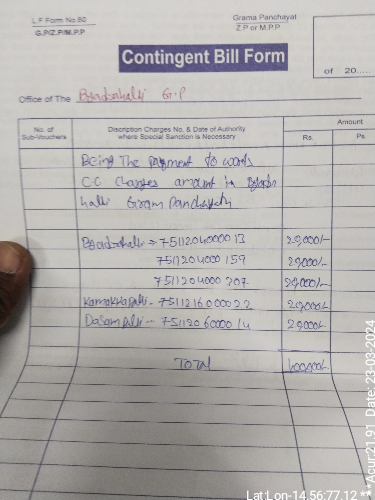 L.F Form No.80
G.P/Z.P/M.P.P
Grama Panchayat
Z.P or M.P.P
Contingent Bill Form
of 20.....
Office of The G.P
No. of Sub-Vouchers
Discription Charges No. & Date of Authority where Special Sanction is Necessary
Amount
Rs.
Ps
Being The payment to words
C.C Charges amount in
halli Gram Panchayth
75112040000 13 20,000/-
7511204000 159 20,000/-
7511204000 207 20,000/-
- 75112160000 22 20,000/-
- 75112060000 14 20,000/-
Total 100000/-
Lat:Lon-14.56:77.12 ***Acur:21.91 Date: 23-03-2024